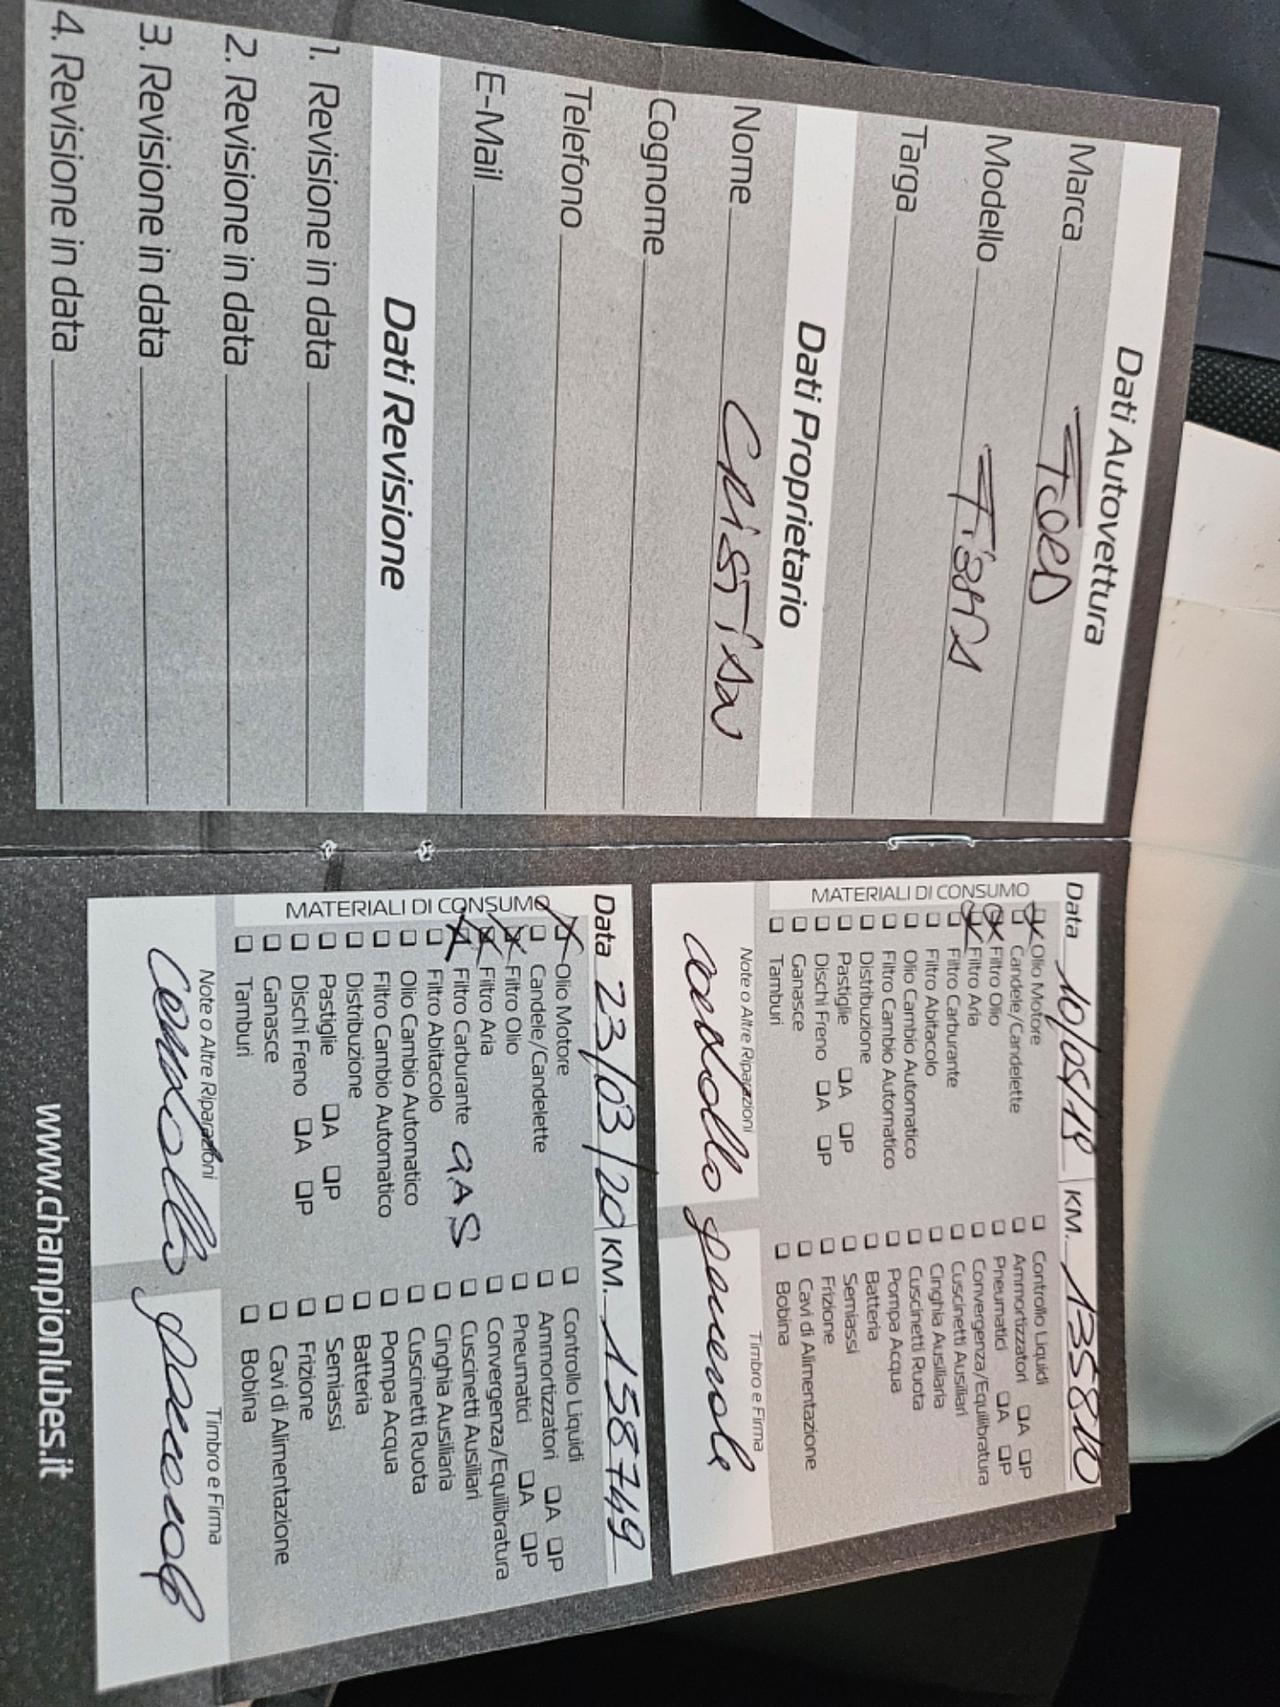 Dati Autovettura
Marca FORD
Modello
Targa
Dati Proprietario
Nome CRISTIAN
Cognome
Telefono
E-Mail
Dati Revisione
1. Revisione in data
2. Revisione in data
3. Revisione in data
4. Revisione in data
Data 10/05/19 KM. 135800
MATERIALI DI CONSUMO
Olio Motore
Candele/Candelette
Filtro Olio
Filtro Aria
Filtro Carburante
Filtro Abitacolo
Olio Cambio Automatico
Filtro Cambio Automatico
Distribuzione
Pastiglie A P
Dischi Freno A P
Ganasce
Tamburi
Controllo Liquidi
Ammortizzatori A P
Pneumatici A P
Convergenza/Equilibratura
Cuscinetti Ausiliari
Cinghia Ausiliaria
Cuscinetti Ruota
Pompa Acqua
Batteria
Semiassi
Frizione
Cavi di Alimentazione
Bobina
Note o Altre Riparazioni
Timbro e Firma
Data 23/03/20 KM. 158749
MATERIALI DI CONSUMO
Olio Motore
Candele/Candelette
Filtro Olio
Filtro Aria
Filtro Carburante GAS
Filtro Abitacolo
Olio Cambio Automatico
Filtro Cambio Automatico
Distribuzione
Pastiglie A P
Dischi Freno A P
Ganasce
Tamburi
Controllo Liquidi
Ammortizzatori A P
Pneumatici A P
Convergenza/Equilibratura
Cuscinetti Ausiliari
Cinghia Ausiliaria
Cuscinetti Ruota
Pompa Acqua
Batteria
Semiassi
Frizione
Cavi di Alimentazione
Bobina
Note o Altre Riparazioni
Timbro e Firma
www.championlubes.it